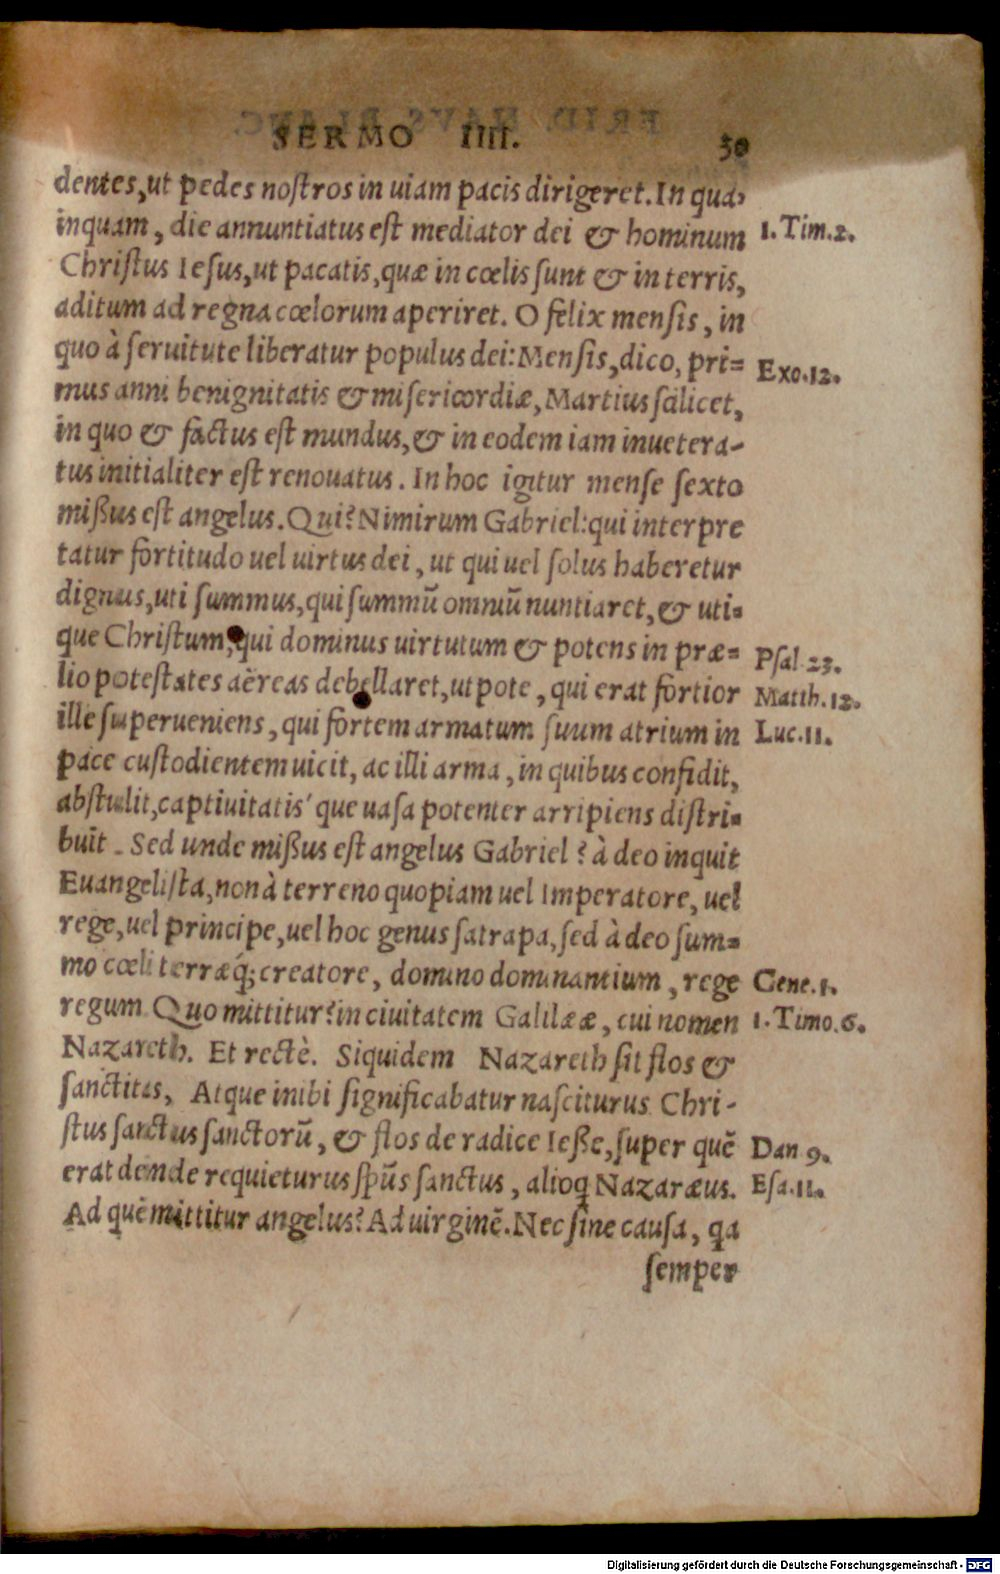 SERMO IIII. 30
dentes, ut pedes noſtros in uiam pacis dirigeret. In qua,
inquam, die annuntiatus eſt mediator dei & hominum
1. Tim. 2.
Chriſtus Ieſus, ut pacatis, quæ in cœlis ſunt & in terris,
aditum ad regna cœlorum aperiret. O felix menſis, in
quo à ſeruitute liberatur populus dei: Menſis, dico, pri=
Exo. 12.
mus anni benignitatis & miſericordiæ, Martius ſcilicet,
in quo & factus eſt mundus, & in eodem iam inuetera-
tus initialiter eſt renouatus. In hoc igitur menſe ſexto
mißus eſt angelus. Qui? Nimirum Gabriel: qui interpre
tatur fortitudo uel uirtus dei, ut qui uel ſolus haberetur
dignus, uti ſummus, qui ſummū omniū nuntiaret, & uti=
que Chriſtum, qui dominus uirtutum & potens in præ=
Pſal. 23.
lio poteſtates aëreas debellaret, utpote, qui erat fortior
Matth. 12.
ille ſuperueniens, qui fortem armatum ſuum atrium in
Luc. 11.
pace cuſtodientem uicit, ac illi arma, in quibus confidit,
abſtulit, captiuitatis' que uaſa potenter arripiens diſtri=
buit. Sed unde mißus eſt angelus Gabriel? à deo inquit
Euangeliſta, non à terreno quopiam uel Imperatore, uel
rege, uel principe, uel hoc genus ſatrapa, ſed à deo ſum=
mo cœli terræq́; creatore, domino dominantium, rege
Gene. 1.
regum. Quo mittitur? in ciuitatem Galilææ, cui nomen
1. Timo. 6.
Nazareth. Et rectè. Siquidem Nazareth ſit flos &
ſanctitas, Atque inibi ſignificabatur naſciturus Chri-
ſtus ſanctus ſanctorū, & flos de radice Ieße, ſuper quē
Dan 9.
erat deinde requieturus ſpūs ſanctus, alioꝗ Nazaræus.
Eſa. 11.
Ad quē mittitur angelus? Ad uirginē. Nec ſine cauſa, ꝗa
ſemper
Digitalisierung gefördert durch die Deutsche Forschungsgemeinschaft - DFG